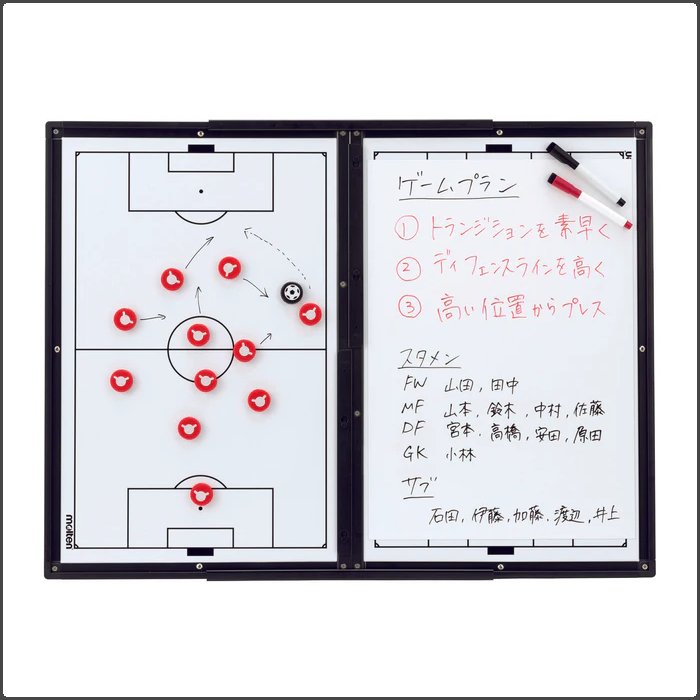 molten
ゲームプラン
① トランジションを素早く
② ディフェンスラインを高く
③ 高い位置からプレス
スタメン
FW 山田, 田中
MF 山本, 鈴木, 中村, 佐藤
DF 宮本, 高橋, 安田, 原田
GK 小林
サブ
石田, 伊藤, 加藤, 渡辺, 井上